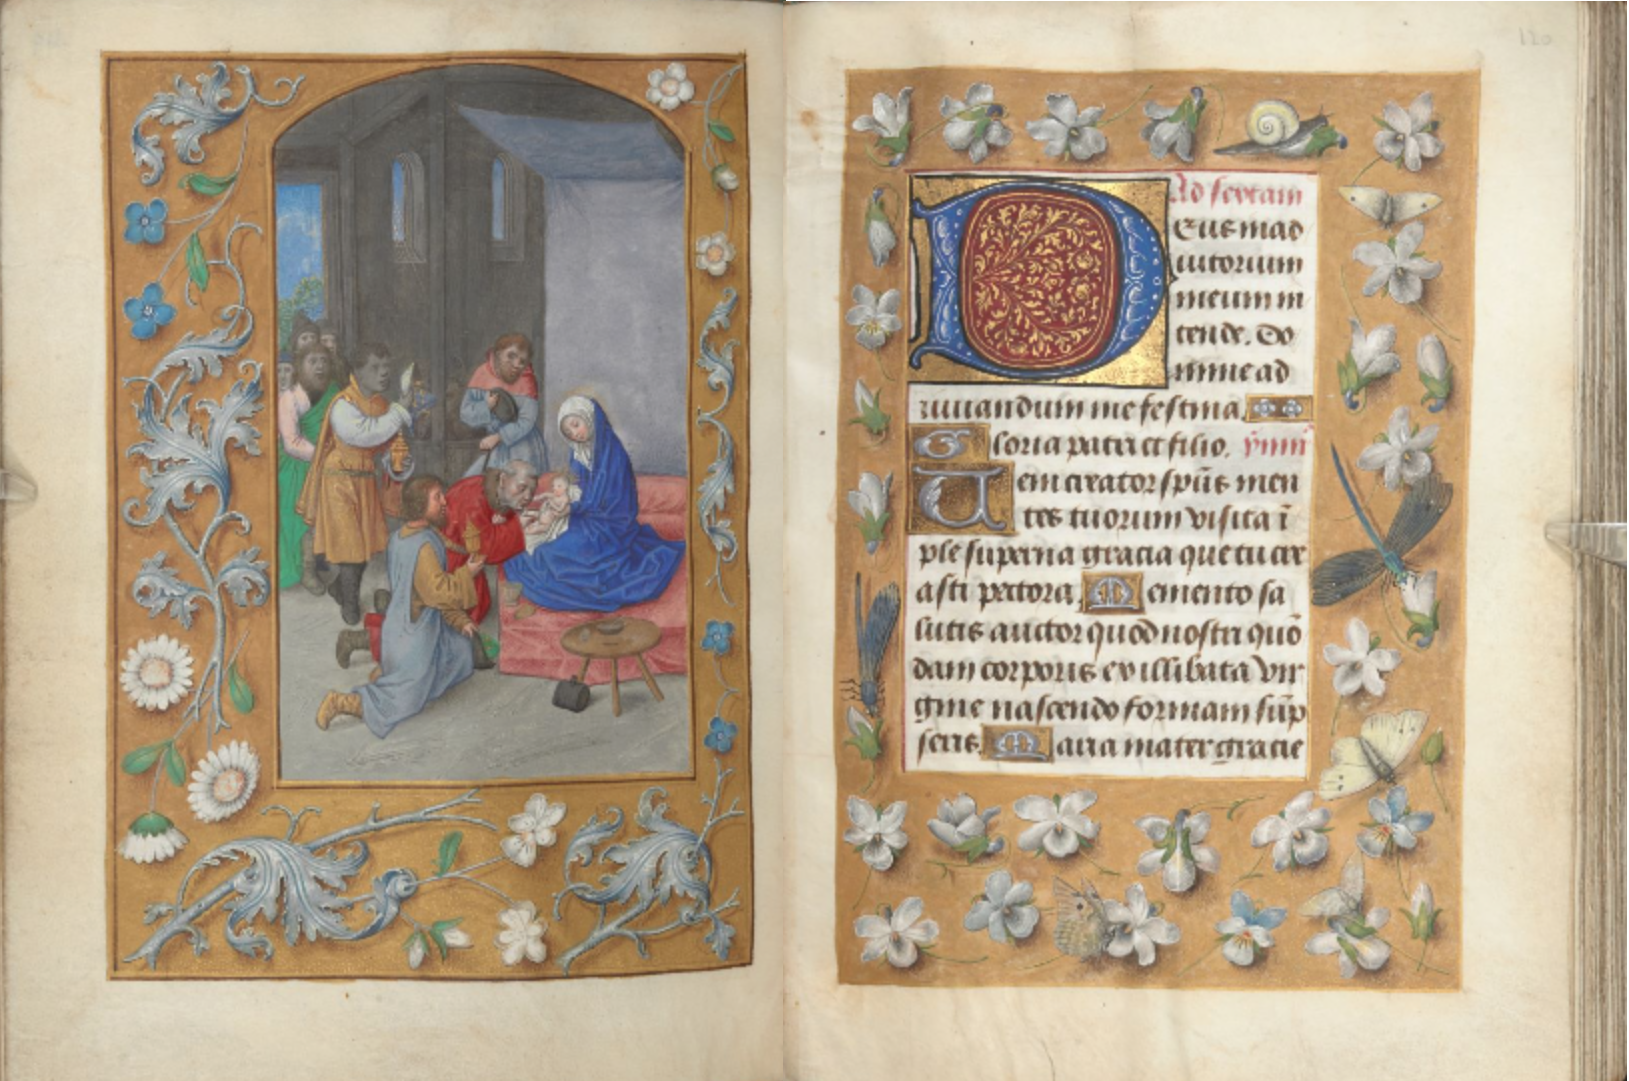 Ad sextam
Eus in ad
iutorium
meum in
tende. Do
mine ad
iuuandum me festina.
Gloria patri et filio. ymnus
Ueni creator spūs men
tes tuorum visita ī
ple superna gracia que tu cre
asti pectora. Memento sa
lutis auctor quod nostri quō
dam corporis ex illibata vir
gine nascendo formam sūp
seris. Maria mater gracie
120